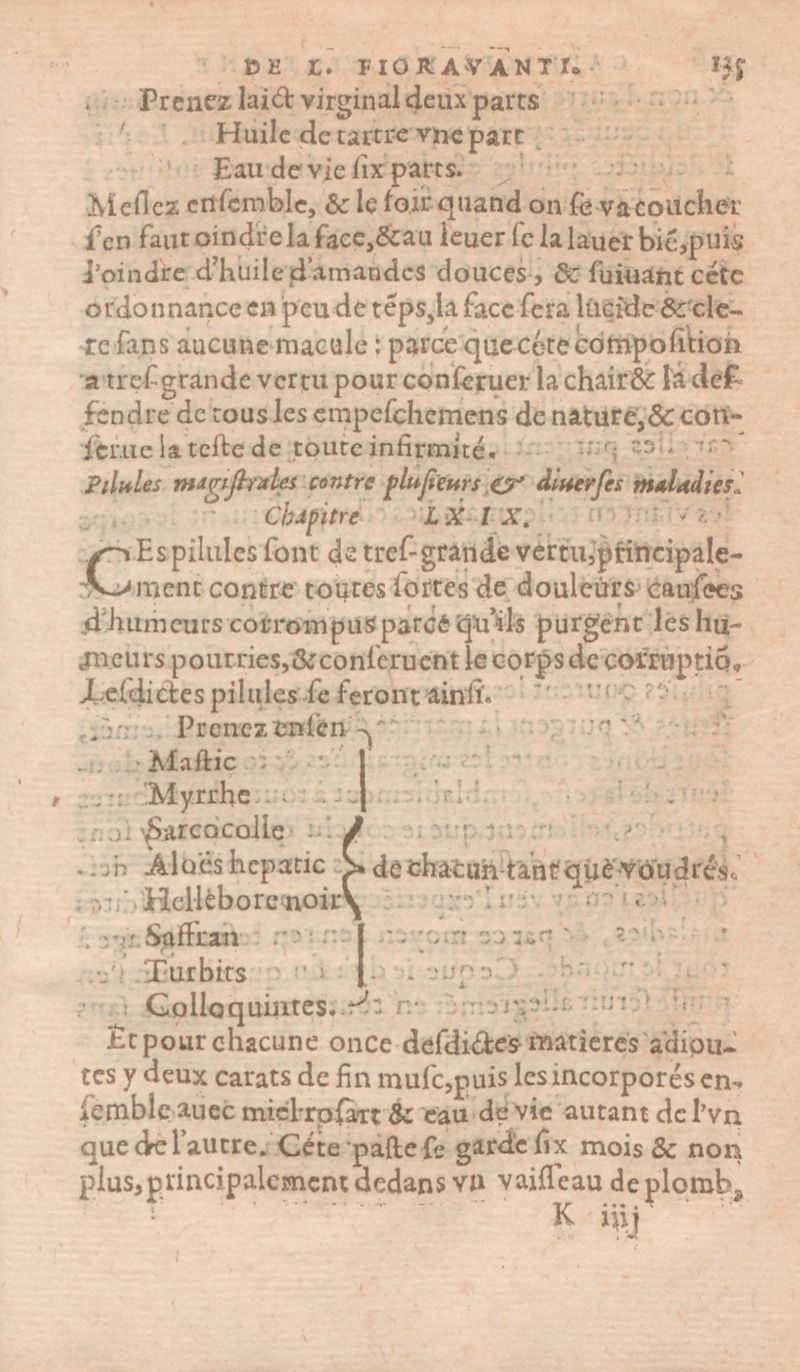 DE L. FIORAVANTI. 135
Prenez laict virginal deux parts
Huile de tartre vne part
Eau de vie six parts.
Meslez ensemble, & le soir quand on se va coucher
s'en faut oindre la face, & au leuer se la lauer biẽ, puis
l'oindre d'huile d'amandes douces, & suiuant céte
ordonnance en peu de tẽps, la face sera lucide & cle-
re sans aucune macule : parce que céte composition
a tres-grande vertu pour conseruer la chair & la def-
fendre de tous les empeschemens de nature, & con-
serue la teste de toute infirmité.
Pilules magistrales contre plusieurs & diuerses maladies.
Chapitre LXIX.
CEs pilules sont de tres-grande vertu, principale-
ment contre toutes sortes de douleurs causees
d'humeurs corrompus parcé qu'ils purgent les hu-
meurs pourries, & conseruent le corps de corruptiõ.
Lesdictes pilules se feront ainsi.
Prenez ensen
Mastic
Myrrhe
Sarcocolle
Aloës hepatic de chacun tant que voudrés.
Hellebore noir
Saffran
Turbits
Colloquintes.
Et pour chacune once desdictes matieres adiou-
tes y deux carats de fin musc, puis les incorporés en-
semble auec miel rosart & eau de vie autant de l'vn
que de l'autre. Céte paste se garde six mois & non
plus, principalement dedans vn vaisseau de plomb,
K iiij